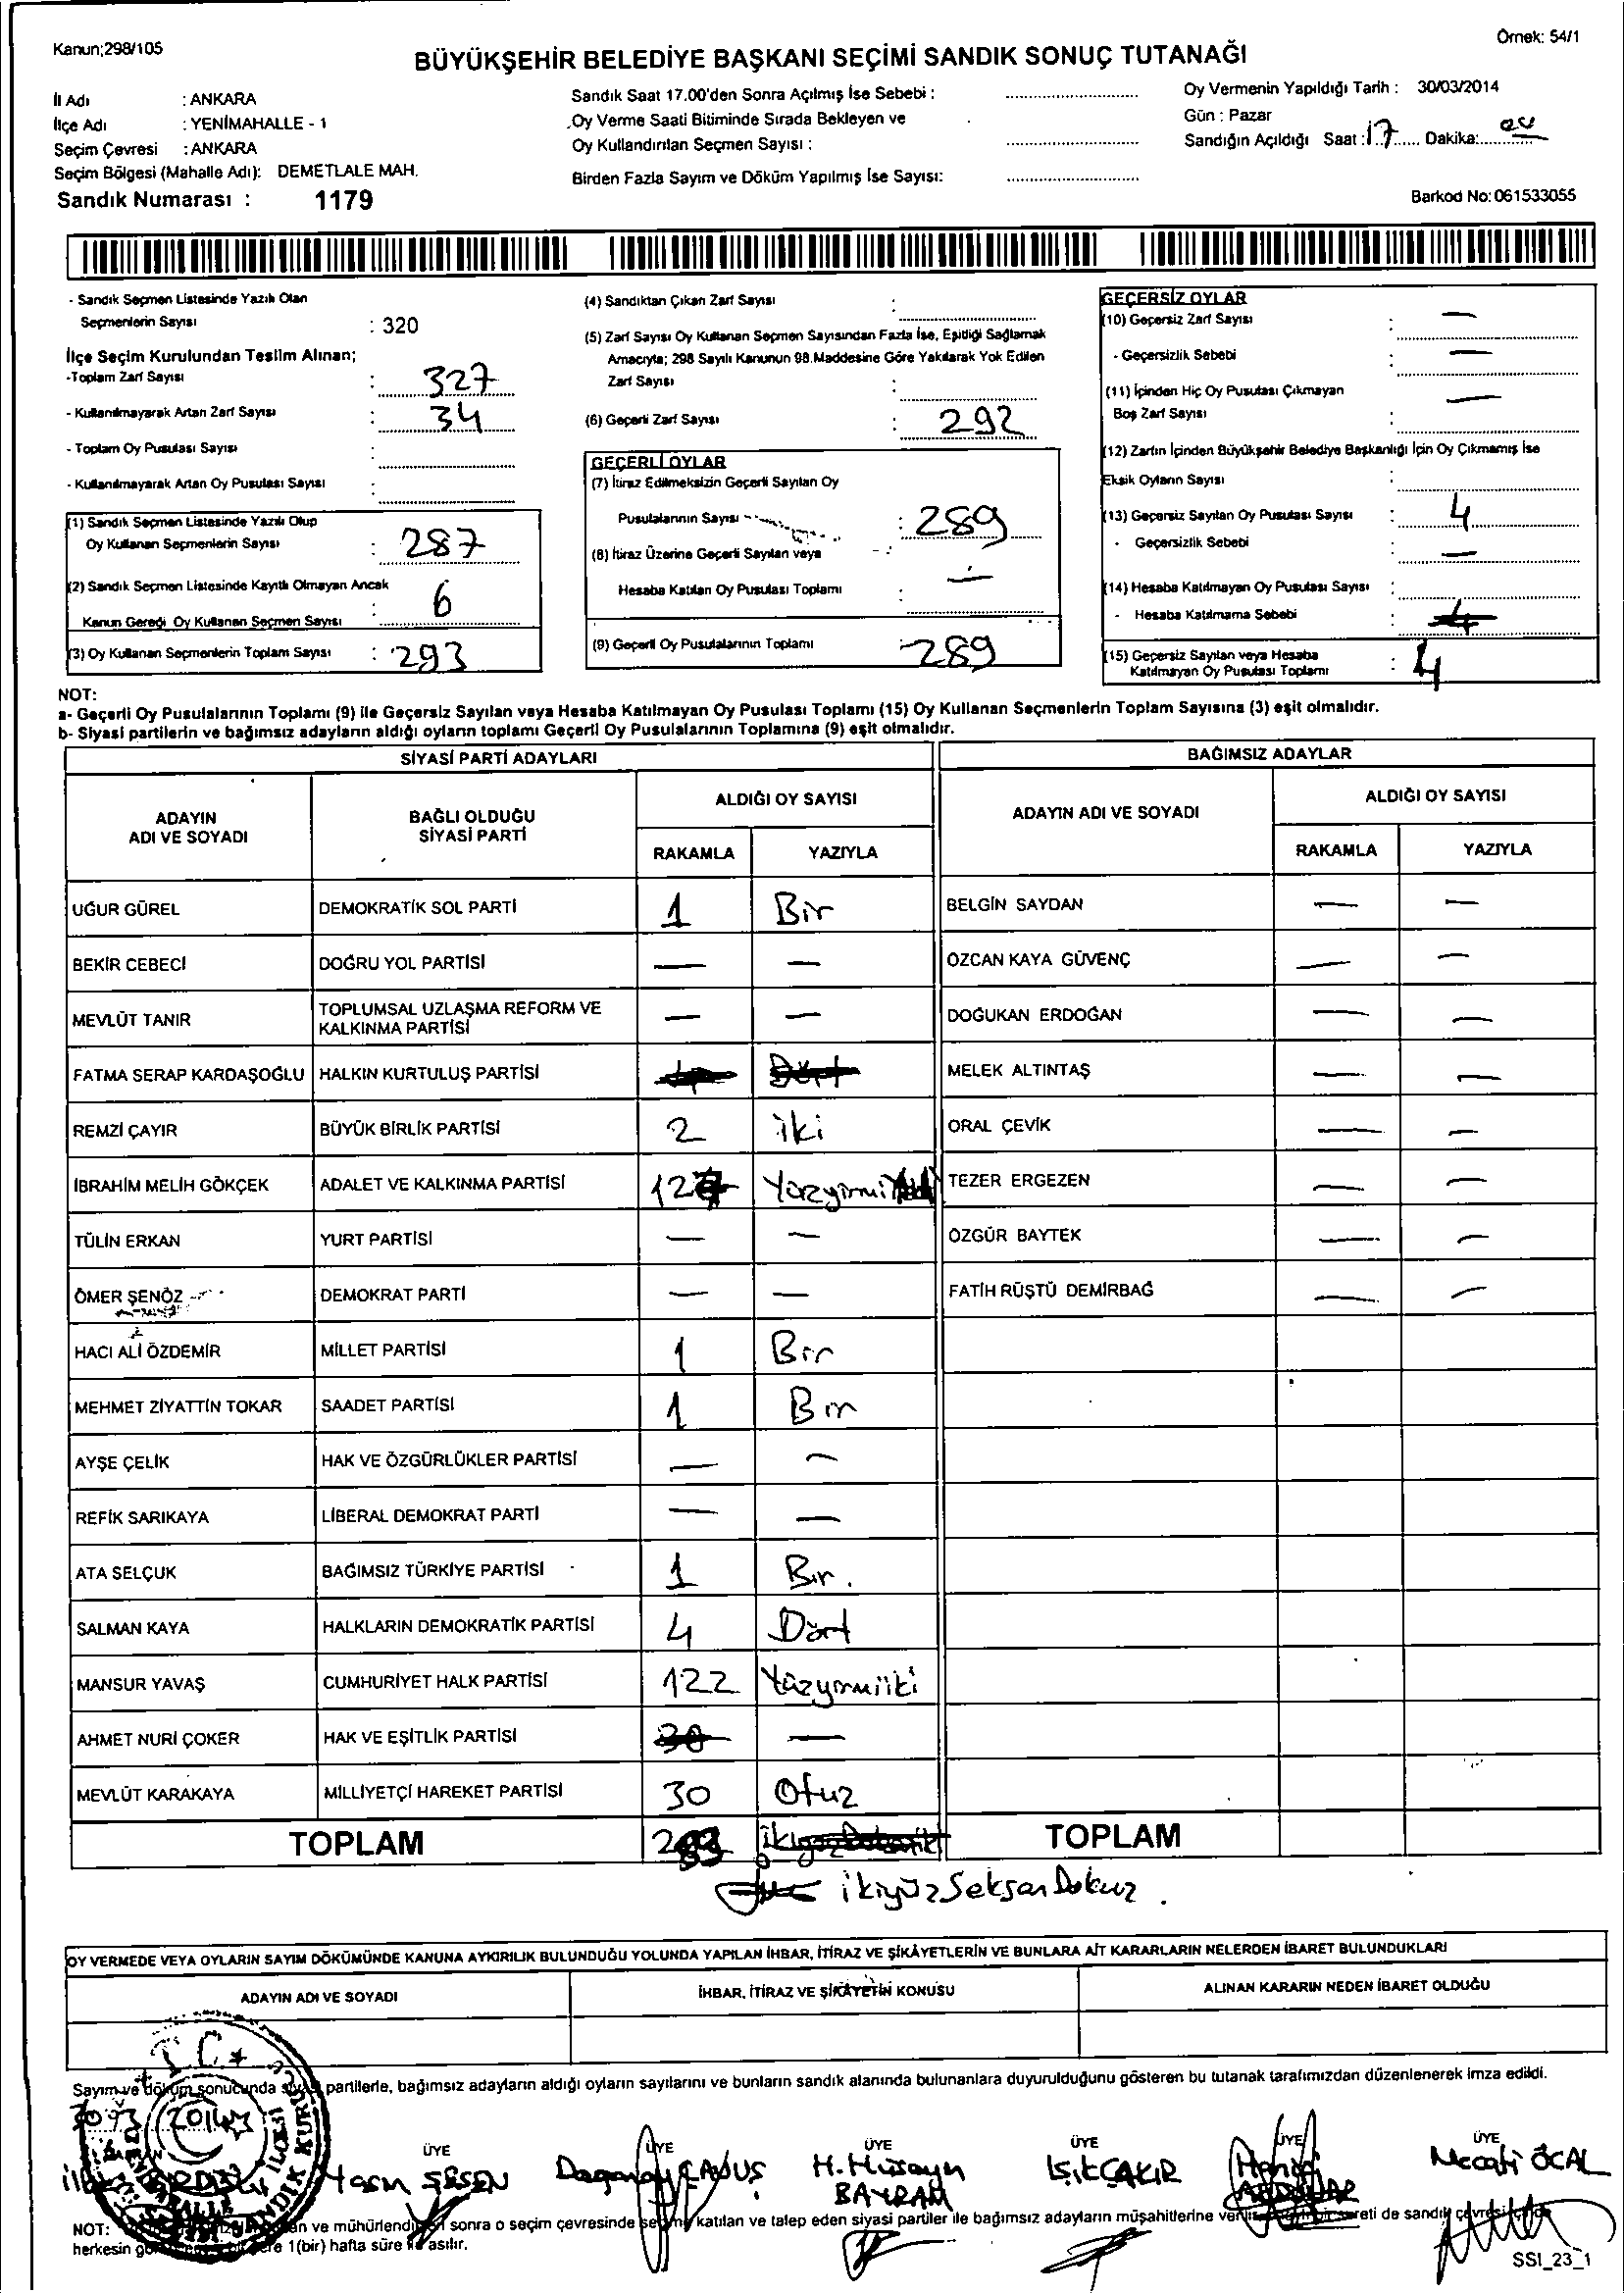 Kanun;298/105
Örnek: 54/1
BÜYÜKŞEHİR BELEDİYE BAŞKANI SEÇİMİ SANDIK SONUÇ TUTANAĞI
İl Adı : ANKARA
İlçe Adı : YENİMAHALLE - 1
Seçim Çevresi : ANKARA
Seçim Bölgesi (Mahalle Adı): DEMETLALE MAH.
Sandık Numarası : 1179
Sandık Saat 17.00'den Sonra Açılmış İse Sebebi :
Oy Verme Saati Bitiminde Sırada Bekleyen ve
Oy Kullandırılan Seçmen Sayısı :
Birden Fazla Sayım ve Döküm Yapılmış İse Sayısı:
Oy Vermenin Yapıldığı Tarih : 30/03/2014
Gün : Pazar
Sandığın Açıldığı Saat : 17 Dakika:
Barkod No: 061533055
- Sandık Seçmen Listesinde Yazılı Olan
Seçmenlerin Sayısı : 320
İlçe Seçim Kurulundan Teslim Alınan;
-Toplam Zarf Sayısı : 327
- Kullanılmayarak Artan Zarf Sayısı : 34
- Toplam Oy Pusulası Sayısı :
- Kullanılmayarak Artan Oy Pusulası Sayısı :
(1) Sandık Seçmen Listesinde Yazılı Olup
Oy Kullanan Seçmenlerin Sayısı : 287
(2) Sandık Seçmen Listesinde Kayıtlı Olmayan Ancak
Kanun Gereği Oy Kullanan Seçmen Sayısı : 6
(3) Oy Kullanan Seçmenlerin Toplam Sayısı : 293
(4) Sandıktan Çıkan Zarf Sayısı :
(5) Zarf Sayısı Oy Kullanan Seçmen Sayısından Fazla İse, Eşitliği Sağlamak
Amacıyla; 298 Sayılı Kanunun 98.Maddesine Göre Yakılarak Yok Edilen
Zarf Sayısı :
(6) Geçerli Zarf Sayısı : 292
GEÇERLİ OYLAR
(7) İtiraz Edilmeksizin Geçerli Sayılan Oy
Pusulalarının Sayısı : 289
(8) İtiraz Üzerine Geçerli Sayılan veya
Hesaba Katılan Oy Pusulası Toplamı : —
(9) Geçerli Oy Pusulalarının Toplamı : 289
GEÇERSİZ OYLAR
(10) Geçersiz Zarf Sayısı : —
- Geçersizlik Sebebi : —
(11) İçinden Hiç Oy Pusulası Çıkmayan —
Boş Zarf Sayısı :
(12) Zarfın İçinden Büyükşehir Belediye Başkanlığı İçin Oy Çıkmamış İse
Eksik Oyların Sayısı :
(13) Geçersiz Sayılan Oy Pusulası Sayısı : 4
- Geçersizlik Sebebi : —
(14) Hesaba Katılmayan Oy Pusulası Sayısı :
- Hesaba Katılmama Sebebi :
(15) Geçersiz Sayılan veya Hesaba
Katılmayan Oy Pusulası Toplamı : 4
NOT:
a- Geçerli Oy Pusulalarının Toplamı (9) ile Geçersiz Sayılan veya Hesaba Katılmayan Oy Pusulası Toplamı (15) Oy Kullanan Seçmenlerin Toplam Sayısına (3) eşit olmalıdır.
b- Siyasi partilerin ve bağımsız adayların aldığı oyların toplamı Geçerli Oy Pusulalarının Toplamına (9) eşit olmalıdır.
SİYASİ PARTİ ADAYLARI
ADAYIN
ADI VE SOYADI
BAĞLI OLDUĞU
SİYASİ PARTİ
ALDIĞI OY SAYISI
RAKAMLA YAZIYLA
UĞUR GÜREL DEMOKRATİK SOL PARTİ 1 Bir
BEKİR CEBECİ DOĞRU YOL PARTİSİ — —
MEVLÜT TANIR TOPLUMSAL UZLAŞMA REFORM VE
KALKINMA PARTİSİ — —
FATMA SERAP KARDAŞOĞLU HALKIN KURTULUŞ PARTİSİ
REMZİ ÇAYIR BÜYÜK BİRLİK PARTİSİ 2 iki
İBRAHİM MELİH GÖKÇEK ADALET VE KALKINMA PARTİSİ
TÜLİN ERKAN YURT PARTİSİ — —
ÖMER ŞENÖZ DEMOKRAT PARTİ — —
HACI ALİ ÖZDEMİR MİLLET PARTİSİ 1 Bir
MEHMET ZİYATTİN TOKAR SAADET PARTİSİ 1 Bir
AYŞE ÇELİK HAK VE ÖZGÜRLÜKLER PARTİSİ — —
REFİK SARIKAYA LİBERAL DEMOKRAT PARTİ — —
ATA SELÇUK BAĞIMSIZ TÜRKİYE PARTİSİ 1 Bir.
SALMAN KAYA HALKLARIN DEMOKRATİK PARTİSİ 4 Dört
MANSUR YAVAŞ CUMHURİYET HALK PARTİSİ 122 Yüzyirmiiki
AHMET NURİ ÇOKER HAK VE EŞİTLİK PARTİSİ 30 —
MEVLÜT KARAKAYA MİLLİYETÇİ HAREKET PARTİSİ 30 Otuz
TOPLAM
ikiyüzSeksenDokuz .
BAĞIMSIZ ADAYLAR
ADAYIN ADI VE SOYADI
ALDIĞI OY SAYISI
RAKAMLA YAZIYLA
BELGİN SAYDAN — —
ÖZCAN KAYA GÜVENÇ — —
DOĞUKAN ERDOĞAN — —
MELEK ALTINTAŞ — —
ORAL ÇEVİK — —
TEZER ERGEZEN — —
ÖZGÜR BAYTEK — —
FATİH RÜŞTÜ DEMİRBAĞ — —
TOPLAM
OY VERMEDE VEYA OYLARIN SAYIM DÖKÜMÜNDE KANUNA AYKIRILIK BULUNDUĞU YOLUNDA YAPILAN İHBAR, İTİRAZ VE ŞİKÂYETLERİN VE BUNLARA AİT KARARLARIN NELERDEN İBARET BULUNDUKLARI
ADAYIN ADI VE SOYADI
İHBAR, İTİRAZ VE ŞİKÂYETİN KONUSU
ALINAN KARARIN NEDEN İBARET OLDUĞU
Sayım ve döküm sonucunda siyasi partilerle, bağımsız adayların aldığı oyların sayılarını ve bunların sandık alanında bulunanlara duyurulduğunu gösteren bu tutanak tarafımızdan düzenlenerek imza edildi.
T.C.
2014
ÜYE ÜYE ÜYE ÜYE ÜYE ÜYE
H. Hüseyin
BAYRAM
IŞIK ÇAKIR
Necati ÖCAL
NOT: ve mühürlendi sonra o seçim çevresinde katılan ve talep eden siyasi partiler ile bağımsız adayların müşahitlerine
herkesin 1(bir) hafta süre asılır.
SSI_23_1